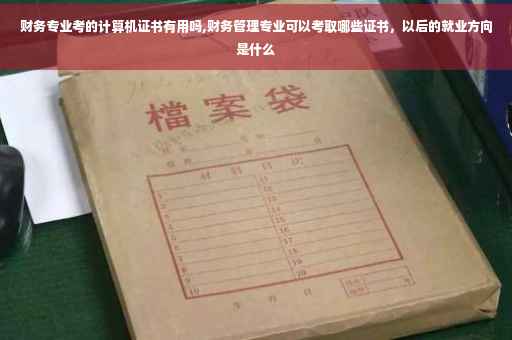 财务专业考的计算机证书有用吗,财务管理专业可以考取哪些证书，以后的就业方向
是什么
檔案袋
材料目次
1
2
3
4
5
6
7
8
9
10
11
12
13
14
15
16
17
18
19
20
年 月 日